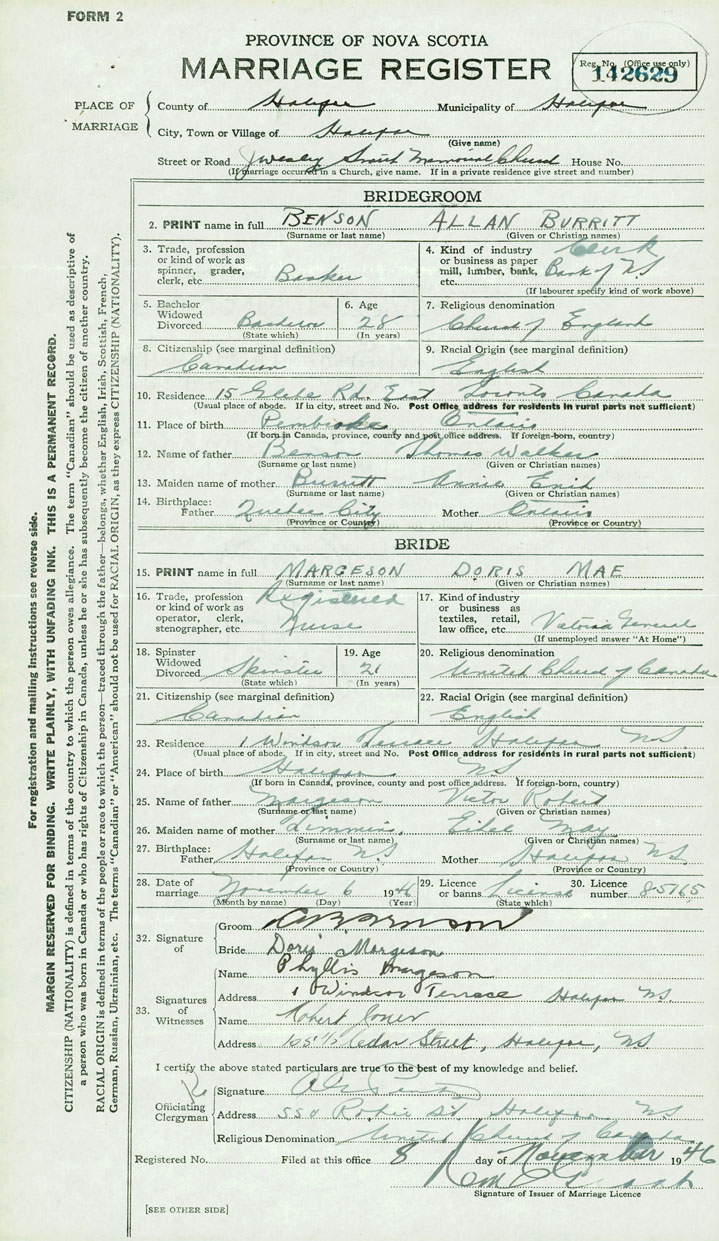 FORM 2
PROVINCE OF NOVA SCOTIA
MARRIAGE REGISTER
Reg. No. (Office use only)
142629
PLACE OF MARRIAGE
County of Halifax Municipality of Halifax
City, Town or Village of Halifax
(Give name)
Street or Road J Wesley Smith Memorial Church House No.
(If marriage occurred in a Church, give name. If in a private residence give street and number)
BRIDEGROOM
2. PRINT name in full BENSON ALLAN BURRITT
(Surname or last name) (Given or Christian names)
3. Trade, profession or kind of work as spinner, grader, clerk, etc. Banker
4. Kind of industry or business as paper mill, lumber, bank, etc. Clerk Bank of NS
(If labourer specify kind of work above)
5. Bachelor Widowed Divorced Bachelor
(State which)
6. Age 28
(In years)
7. Religious denomination
Church of England
8. Citizenship (see marginal definition)
Canadian
9. Racial Origin (see marginal definition)
English
10. Residence 15 Glebe Rd. East Toronto Canada
(Usual place of abode. If in city, street and No. Post Office address for residents in rural parts not sufficient)
11. Place of birth Pembroke, Ontario
(If born in Canada, province, county and post office address. If foreign-born, country)
12. Name of father Benson Thomas Walker
(Surname or last name) (Given or Christian names)
13. Maiden name of mother Burritt Annie Enid
(Surname or last name) (Given or Christian names)
14. Birthplace: Father Quebec City Mother Ontario
(Province or Country) (Province or Country)
BRIDE
15. PRINT name in full MARGESON DORIS MAE
(Surname or last name) (Given or Christian names)
16. Trade, profession or kind of work as operator, clerk, stenographer, etc. Registered Nurse
17. Kind of industry or business as textiles, retail, law office, etc. Victoria General
(If unemployed answer "At Home")
18. Spinster Widowed Divorced Spinster
(State which)
19. Age 21
(In years)
20. Religious denomination
United Church of Canada
21. Citizenship (see marginal definition)
Canadian
22. Racial Origin (see marginal definition)
English
23. Residence 1 Windsor Terrace Halifax NS
(Usual place of abode. If in city, street and No. Post Office address for residents in rural parts not sufficient)
24. Place of birth Halifax NS
(If born in Canada, province, county and post office address. If foreign-born, country)
25. Name of father Margeson Victor Robert
(Surname or last name) (Given or Christian names)
26. Maiden name of mother Ethel May
(Surname or last name) (Given or Christian names)
27. Birthplace: Father Halifax NS Mother Halifax NS
(Province or Country) (Province or Country)
28. Date of marriage November 6 1946
(Month by name) (Day) (Year)
29. Licence or banns License
(State which)
30. Licence number 85765
32. Signature of
Groom AB Benson
Bride Doris Margeson
33. Signatures of Witnesses
Name Phyllis Margeson
Address 1 Windsor Terrace Halifax NS.
Name Robert Jones
Address Cedar Street, Halifax, NS.
I certify the above stated particulars are true to the best of my knowledge and belief.
Officiating Clergyman
Signature
Address 550 Robie St Halifax NS
Religious Denomination United Church of Canada
Registered No. Filed at this office 8 day of November 1946
Signature of Issuer of Marriage Licence
[SEE OTHER SIDE]
For registration and mailing instructions see reverse side.
MARGIN RESERVED FOR BINDING. WRITE PLAINLY, WITH UNFADING INK. THIS IS A PERMANENT RECORD.
CITIZENSHIP (NATIONALITY) is defined in terms of the country to which the person owes allegiance. The term "Canadian" should be used as descriptive of
a person who was born in Canada or who has rights of Citizenship in Canada, unless he or she has subsequently become the citizen of another country.
RACIAL ORIGIN is defined in terms of the people or race to which the person—traced through the father—belongs; whether English, Irish, Scottish, French,
German, Russian, Ukrainian, etc. The terms "Canadian" or "American" should not be used for RACIAL ORIGIN, as they express CITIZENSHIP (NATIONALITY).